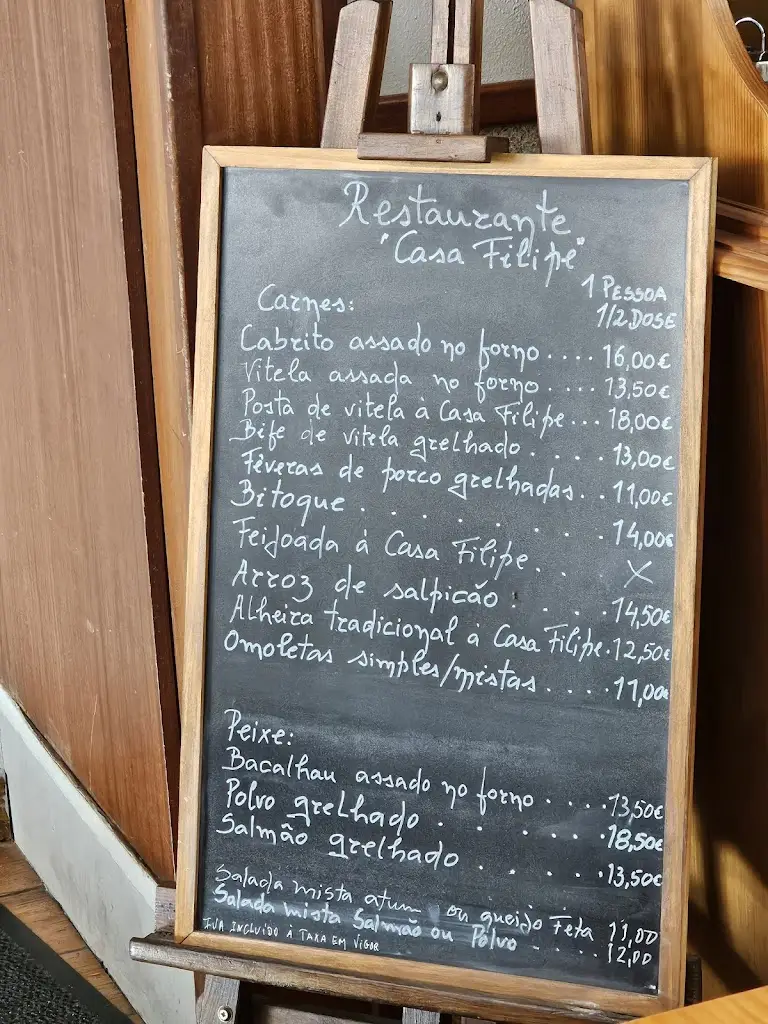 Restaurante
"Casa Filipe"
1 PESSOA
Carnes: 1/2 DOSE
Cabrito assado no forno .... 16,00€
Vitela assada no forno .... 13,50€
Posta de vitela à Casa Filipe... 18,00€
Bife de vitela grelhado . . . . 13,00€
Fêveras de porco grelhadas . . 11,00€
Bitoque . . . . . . . 14,00€
Feijoada à Casa Filipe . . . X
Arroz de salpicão . . . . 14,50€
Alheira tradicional à Casa Filipe . 12,50€
Omoletas simples/mistas . . . . 11,00€
Peixe:
Bacalhau assado no forno . . . . 13,50€
Polvo grelhado . . . . . . 18,50€
Salmão grelhado . . . . . 13,50€
Salada mista atum ou queijo Feta 11,00
Salada mista Salmão ou Polvo . . . . 12,00
IVA INCLUIDO À TAXA EM VIGOR